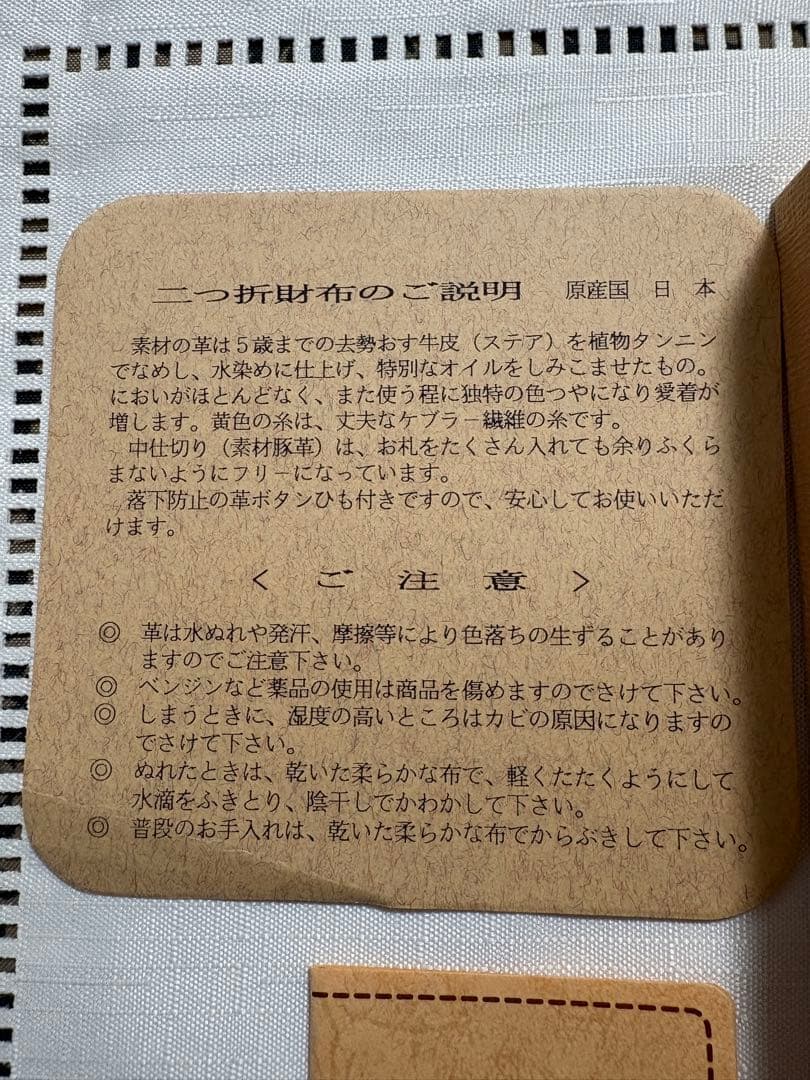 二つ折財布のご説明　原産国　日　本
素材の革は５歳までの去勢おす牛皮（ステア）を植物タンニン
でなめし、水染めに仕上げ、特別なオイルをしみこませたもの。
においがほとんどなく、また使う程に独特の色つやになり愛着が
増します。黄色の糸は、丈夫なケブラー繊維の糸です。
中仕切り（素材豚革）は、お札をたくさん入れても余りふくら
まないようにフリーになっています。
落下防止の革ボタンひも付きですので、安心してお使いいただ
けます。
＜　ご　注　意　＞
◎　革は水ぬれや発汗、摩擦等により色落ちの生ずることがあり
ますのでご注意下さい。
◎　ベンジンなど薬品の使用は商品を傷めますのでさけて下さい。
◎　しまうときに、湿度の高いところはカビの原因になりますの
でさけて下さい。
◎　ぬれたときは、乾いた柔らかな布で、軽くたたくようにして
水滴をふきとり、陰干しでかわかして下さい。
◎　普段のお手入れは、乾いた柔らかな布でからぶきして下さい。